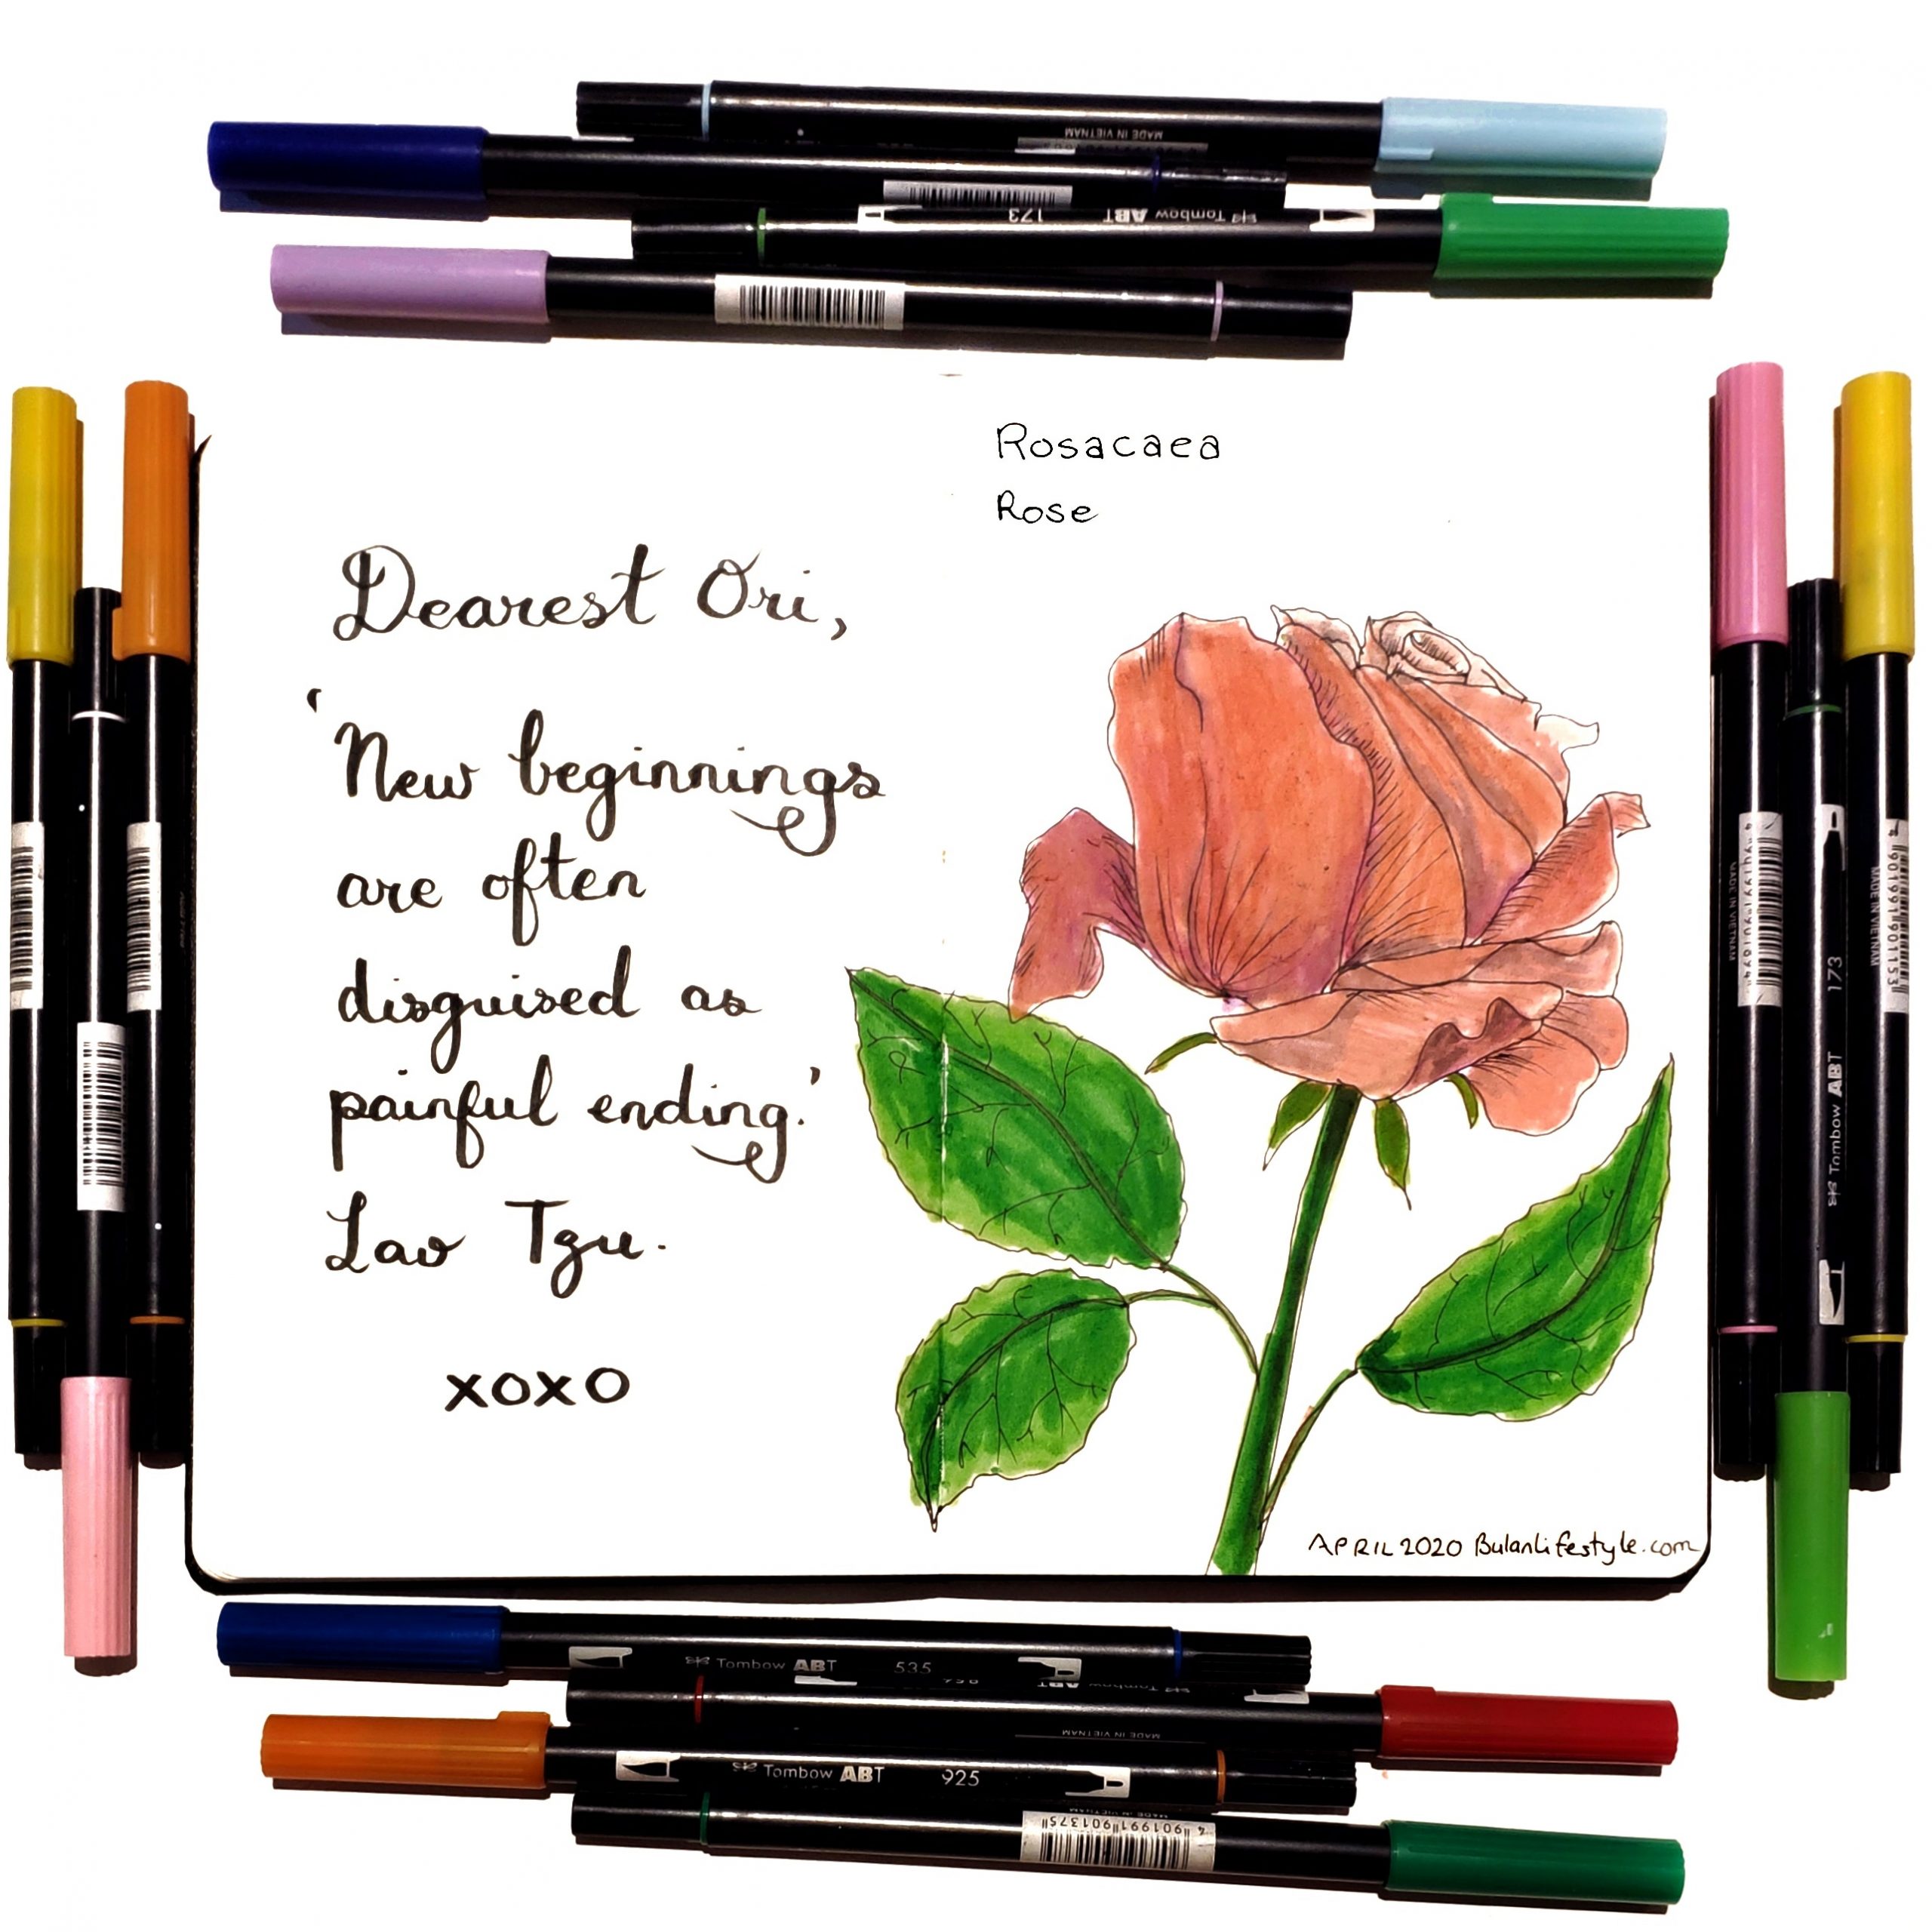 MADE IN VIETNAM
173 Tombow ABT
Rosacaea
Rose
Dearest Ori,
'New beginnings
are often
disguised as
painful ending.'
Lao Tzu.
xoxo
APRIL 2020 BulanLifestyle.com
MADE IN VIETNAM
Tombow ABT 173
4901991901153
MADE IN VIETNAM
Tombow ABT 535
Tombow ABT
MADE IN VIETNAM
Tombow ABT 925
MADE IN VIETNAM
4901991901375